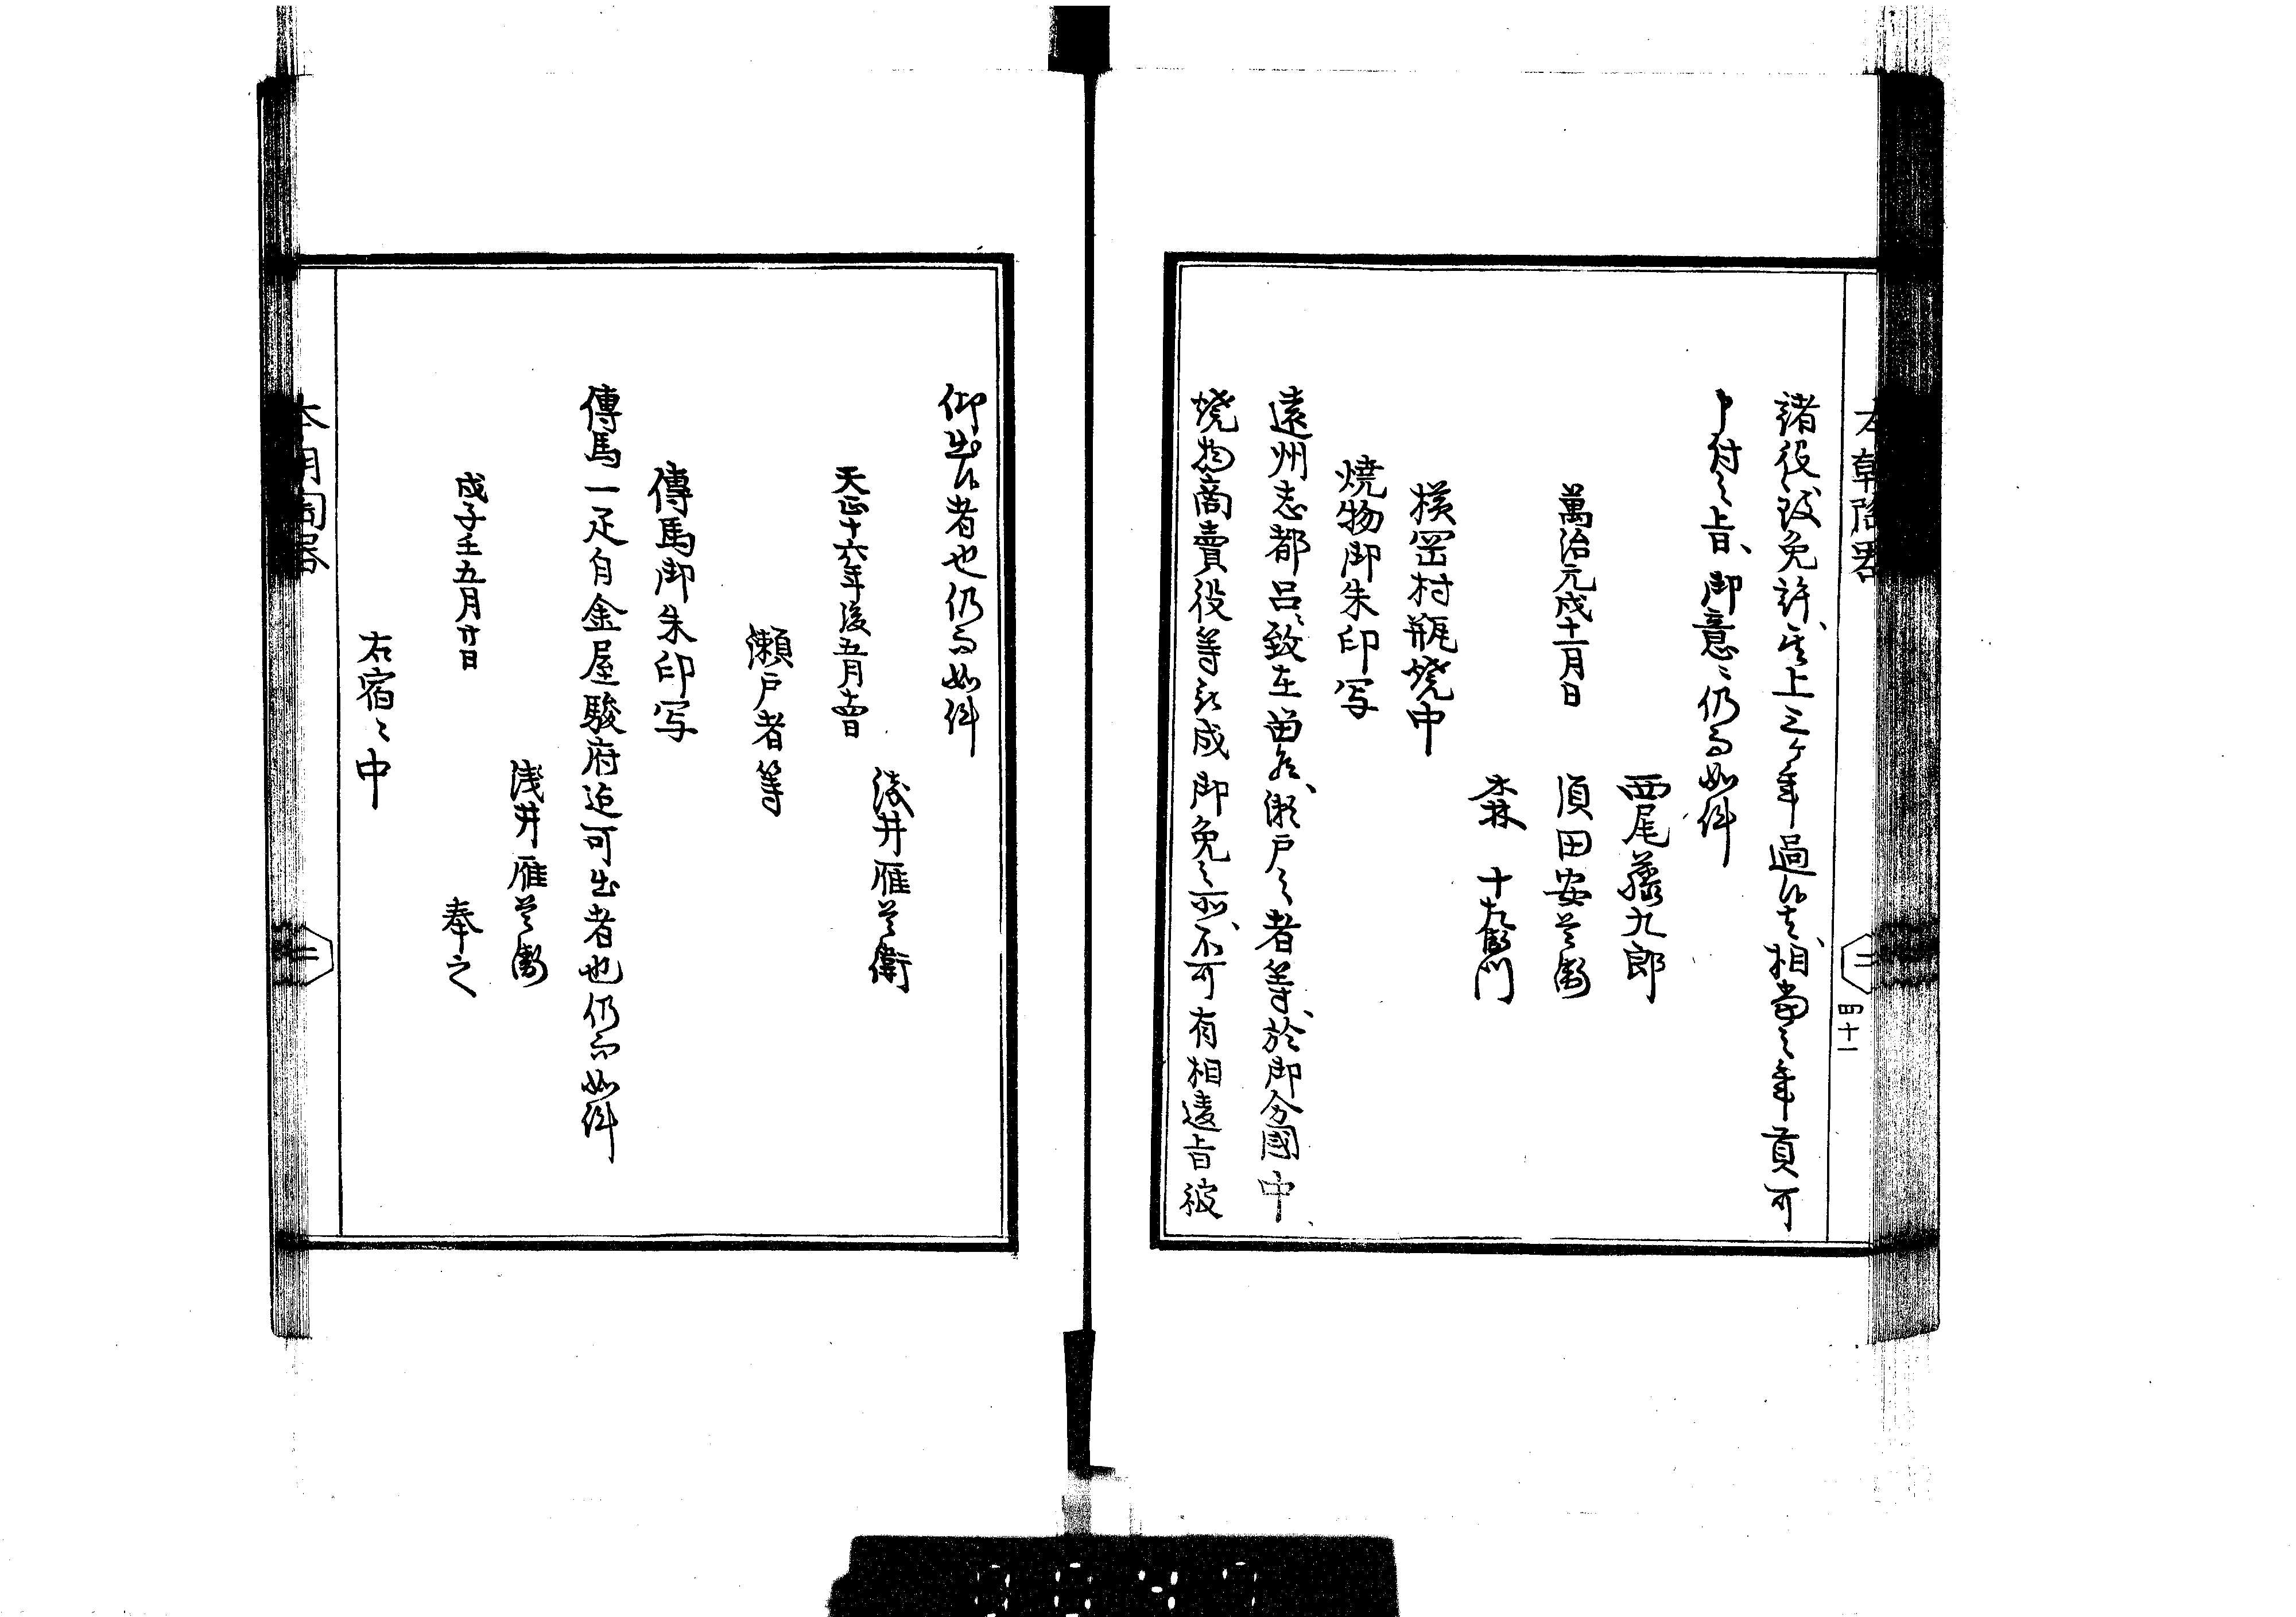 諸役致免許、其上三ケ年過候者、相當之年貢可
申付之旨、御意候、仍而如件
西尾藤九郎
萬治元戌十一月日
須田安兵衛
森 十左衛門
横岡村瓶焼中
焼物御朱印写
遠州志都呂、致在留候、瀬戸之者等、於御分國中、
焼物商賣役等被成御免之所、不可有相違旨被
仰出候者也仍而如件
浅井雁兵衛
天正十六年後五月
瀬戸者等
傳馬御朱印写
傳馬一疋自金屋駿府迄可出者也仍而如件
浅井雁兵衛
戊子壬五月廿日
奉之
右宿々中
二
四十一